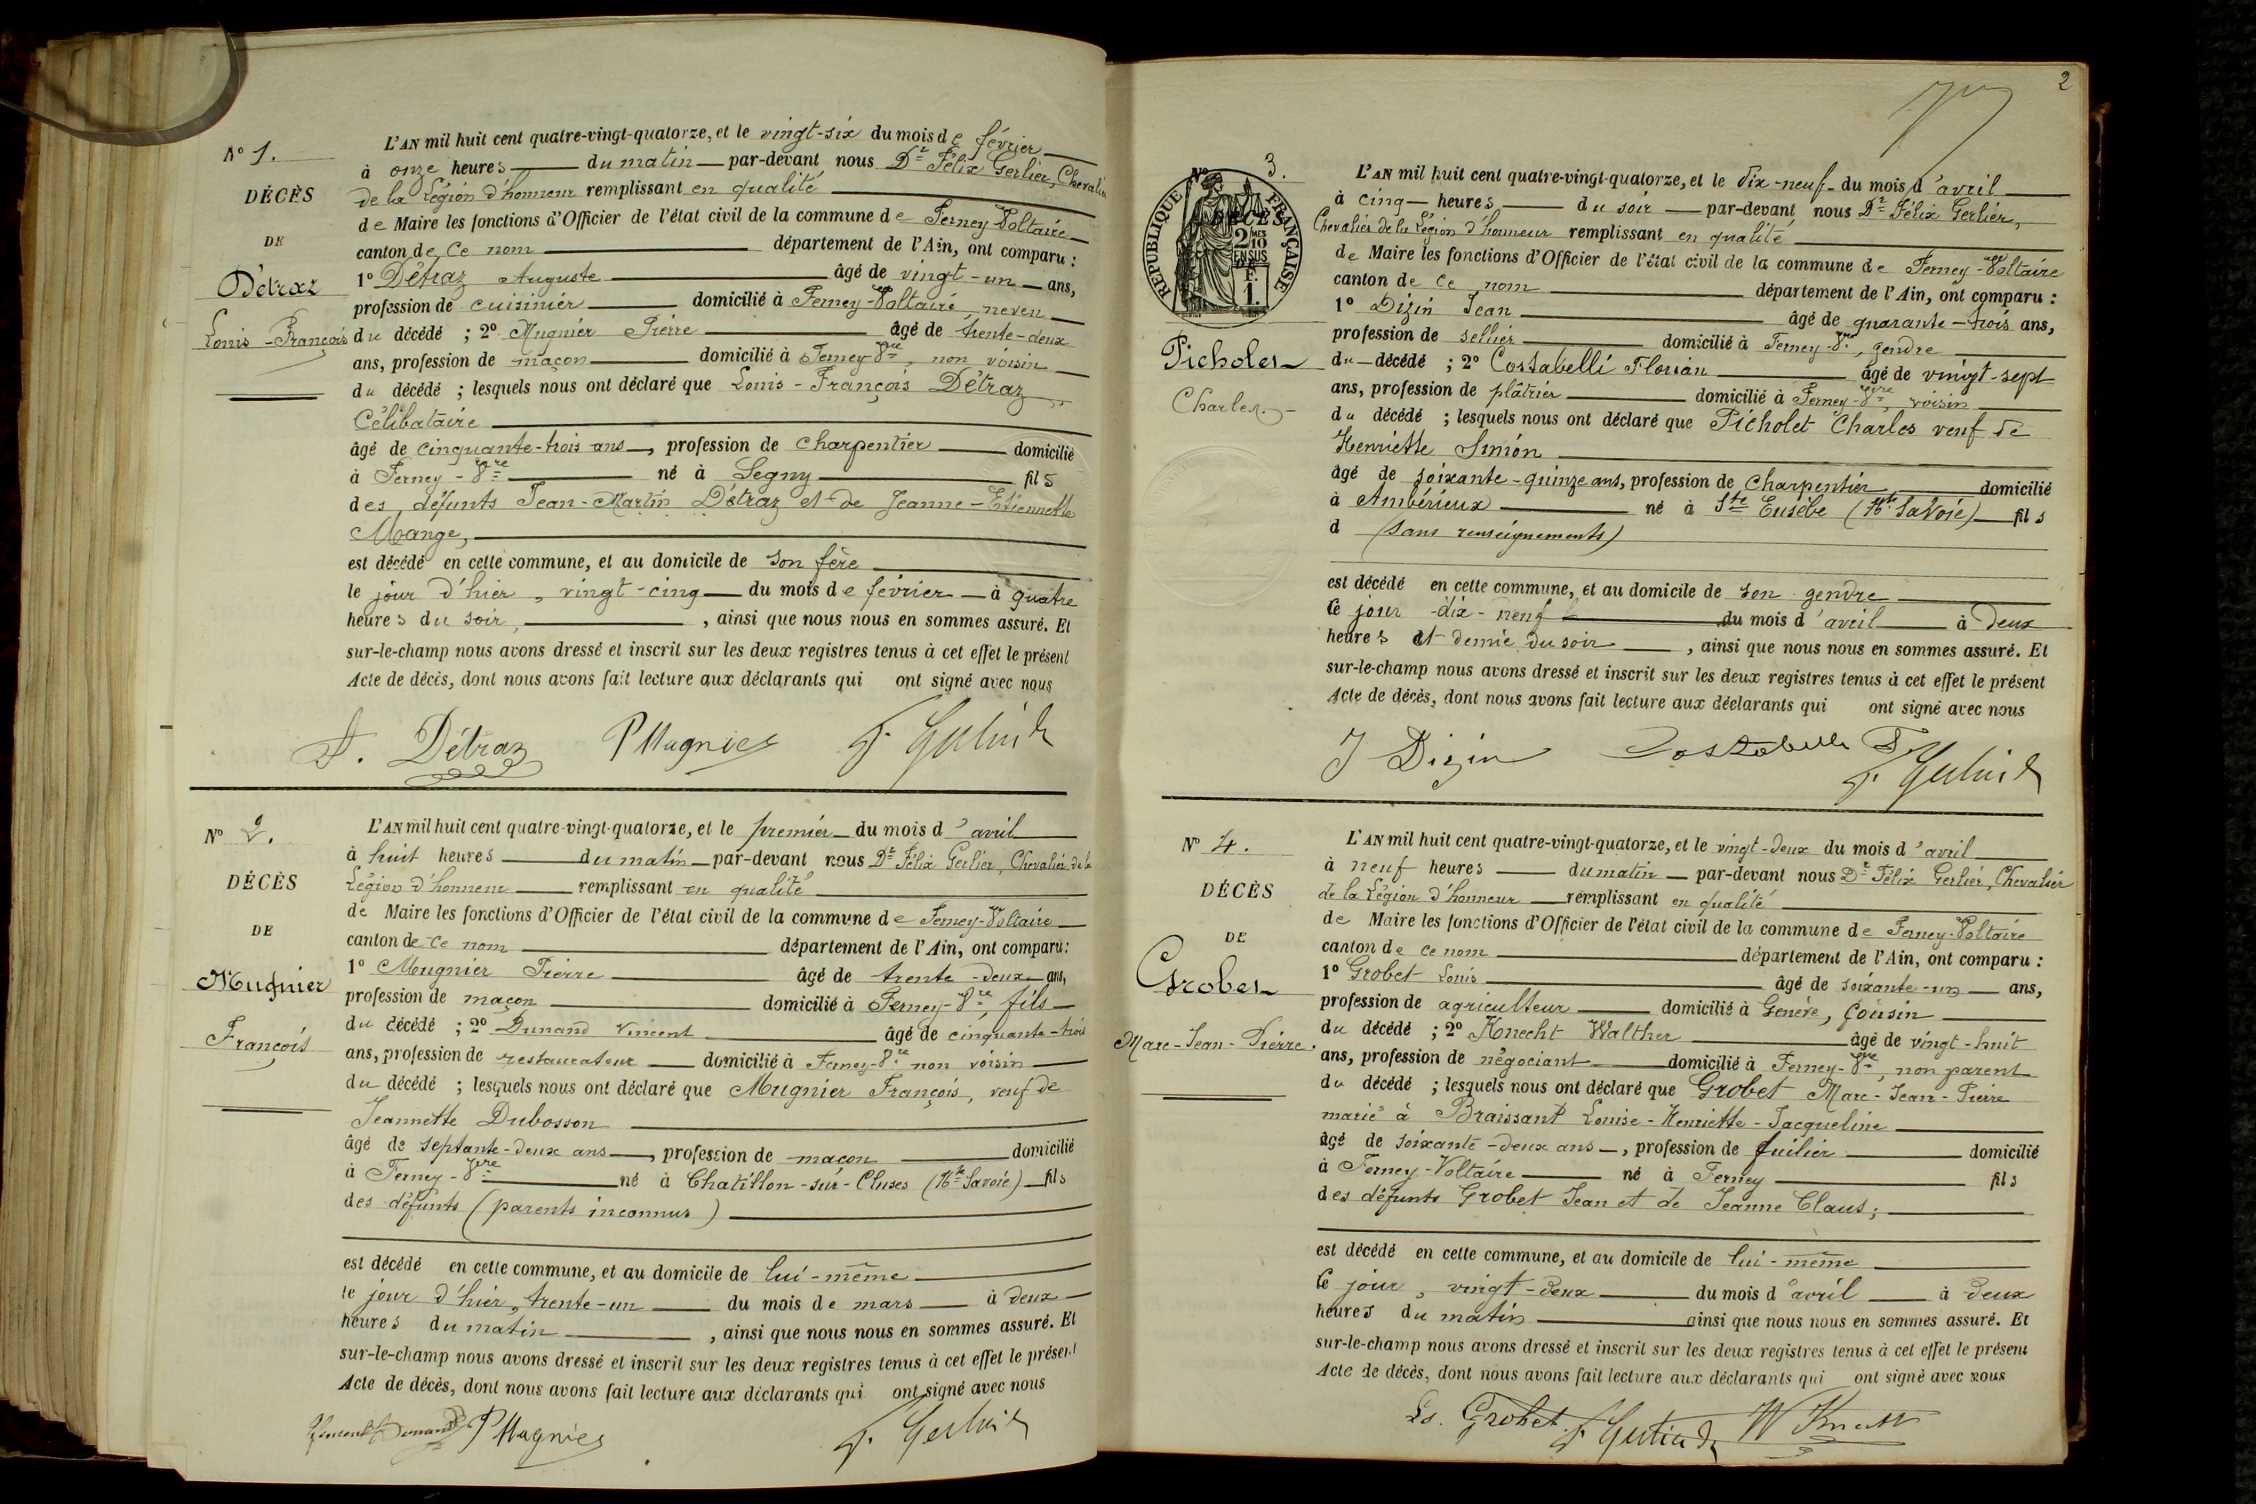 N° 1.
DÉCÈS
DE
Détraz
Louis-François
L'AN mil huit cent quatre-vingt-quatorze, et le vingt-six du mois de février
à onze heures du matin par-devant nous Dr Félix Gerlier, Chevalier
de la Légion d'honneur remplissant en qualité
de Maire les fonctions d'Officier de l'état civil de la commune de Ferney-Voltaire
canton de ce nom département de l'Ain, ont comparu :
1° Détraz Auguste âgé de vingt-un ans,
profession de cuisinier domicilié à Ferney-Voltaire, neveu
du décédé ; 2° Mugnier Pierre âgé de trente-deux
ans, profession de maçon domicilié à Ferney-Vre, non voisin
du décédé ; lesquels nous ont déclaré que Louis-François Détraz,
Célibataire
âgé de cinquante-trois ans, profession de charpentier domicilié
à Ferney-Vre né à Segny fils
des défunts Jean-Martin Détraz et de Jeanne-Etiennette
Mange,
est décédé en cette commune, et au domicile de son fère
le jour d'hier, vingt-cinq du mois de février à quatre
heures du soir, , ainsi que nous nous en sommes assuré. Et
sur-le-champ nous avons dressé et inscrit sur les deux registres tenus à cet effet le présent
Acte de décès, dont nous avons fait lecture aux déclarants qui ont signé avec nous
A. Détraz P Mugnier F. Gerlier Dr
N° 2.
DÉCÈS
DE
Mugnier
François
L'AN mil huit cent quatre-vingt-quatorze, et le premier du mois d'avril
à huit heures du matin par-devant nous Dr Félix Gerlier, Chevalier de la
Légion d'honneur remplissant en qualité
de Maire les fonctions d'Officier de l'état civil de la commune de Ferney-Voltaire
canton de ce nom département de l'Ain, ont comparu :
1° Mugnier Pierre âgé de trente-deux ans,
profession de maçon domicilié à Ferney-Vre, fils
du décédé ; 2° Dunand Vincent âgé de cinquante-trois
ans, profession de restaurateur domicilié à Ferney-Vre non voisin
du décédé ; lesquels nous ont déclaré que Mugnier François, veuf de
Jeannette Dubosson
âgé de septante-deux ans, profession de maçon domicilié
à Ferney-Vre né à Chatillon-sur-Cluses (Hte Savoie) fils
des défunts (parents inconnus)
est décédé en cette commune, et au domicile de lui-même
le jour d'hier, trente-un du mois de mars à deux
heures du matin , ainsi que nous nous en sommes assuré. Et
sur-le-champ nous avons dressé et inscrit sur les deux registres tenus à cet effet le présent
Acte de décès, dont nous avons fait lecture aux déclarants qui ont signé avec nous
Vincent Dunand P Mugnier F. Gerlier Dr
2
N° 3.
DÉCÈS
RÉPUBLIQUE FRANÇAISE
2 MES
10
EN SUS
F.
1.
Picholet
Charles.
L'AN mil huit cent quatre-vingt-quatorze, et le dix-neuf du mois d'avril
à cinq heures du soir par-devant nous Dr Félix Gerlier,
Chevalier de la Légion d'honneur remplissant en qualité
de Maire les fonctions d'Officier de l'état civil de la commune de Ferney-Voltaire
canton de ce nom département de l'Ain, ont comparu :
1° Dizin Jean âgé de quarante-trois ans,
profession de sellier domicilié à Ferney-Vre, gendre
du décédé ; 2° Costabelli Florian âgé de vingt-sept
ans, profession de plâtrier domicilié à Ferney-Vre, voisin
du décédé ; lesquels nous ont déclaré que Picholet Charles veuf de
Henriette Simon
âgé de soixante-quinze ans, profession de charpentier domicilié
à Ambérieux né à Ste Eusèbe (Hte Savoie) fils
d (sans renseignements)
est décédé en cette commune, et au domicile de son gendre
ce jour dix-neuf du mois d'avril à deux
heures et demie du soir , ainsi que nous nous en sommes assuré. Et
sur-le-champ nous avons dressé et inscrit sur les deux registres tenus à cet effet le présent
Acte de décès, dont nous avons fait lecture aux déclarants qui ont signé avec nous
J Dizin Costabelli F F. Gerlier Dr
N° 4.
DÉCÈS
DE
Grobet
Marc-Jean-Pierre.
L'AN mil huit cent quatre-vingt-quatorze, et le vingt-deux du mois d'avril
à neuf heures du matin par-devant nous Dr Félix Gerlier, Chevalier
de la Légion d'honneur remplissant en qualité
de Maire les fonctions d'Officier de l'état civil de la commune de Ferney-Voltaire
canton de ce nom département de l'Ain, ont comparu :
1° Grobet Louis âgé de soixante-un ans,
profession de agriculteur domicilié à Genève, cousin
du décédé ; 2° Knecht Walther âgé de vingt-huit
ans, profession de négociant domicilié à Ferney-Vre, non parent
du décédé ; lesquels nous ont déclaré que Grobet Marc-Jean-Pierre
marié à Braissant Louise-Henriette-Jacqueline
âgé de soixante-deux ans, profession de huilier domicilié
à Ferney-Voltaire né à Ferney fils
des défunts Grobet Jean et de Jeanne Claus ;
est décédé en cette commune, et au domicile de lui-même
ce jour, vingt-deux du mois d'avril à deux
heures du matin ainsi que nous nous en sommes assuré. Et
sur-le-champ nous avons dressé et inscrit sur les deux registres tenus à cet effet le présent
Acte de décès, dont nous avons fait lecture aux déclarants qui ont signé avec nous
Ls. Grobet F. Gerlier Dr W Knecht